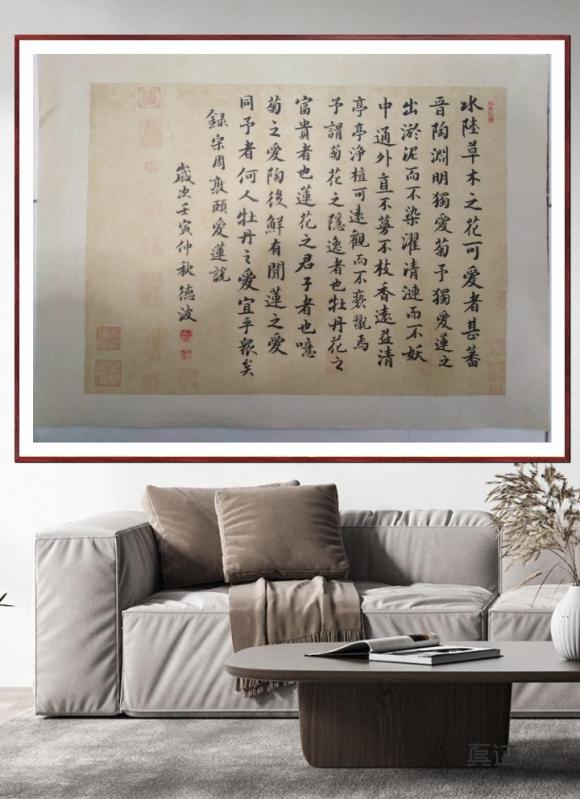 水陸草木之花可愛者甚蕃
晉陶淵明獨愛菊予獨愛蓮之
出淤泥而不染濯清漣而不妖
中通外直不蔓不枝香遠益清
亭亭淨植可遠觀而不褻翫焉
予謂菊花之隱逸者也牡丹花之
富貴者也蓮花之君子者也噫
菊之愛陶後鮮有聞蓮之愛
同予者何人牡丹之愛宜乎衆矣
錄宋周敦頤愛蓮說
歲次壬寅仲秋德波